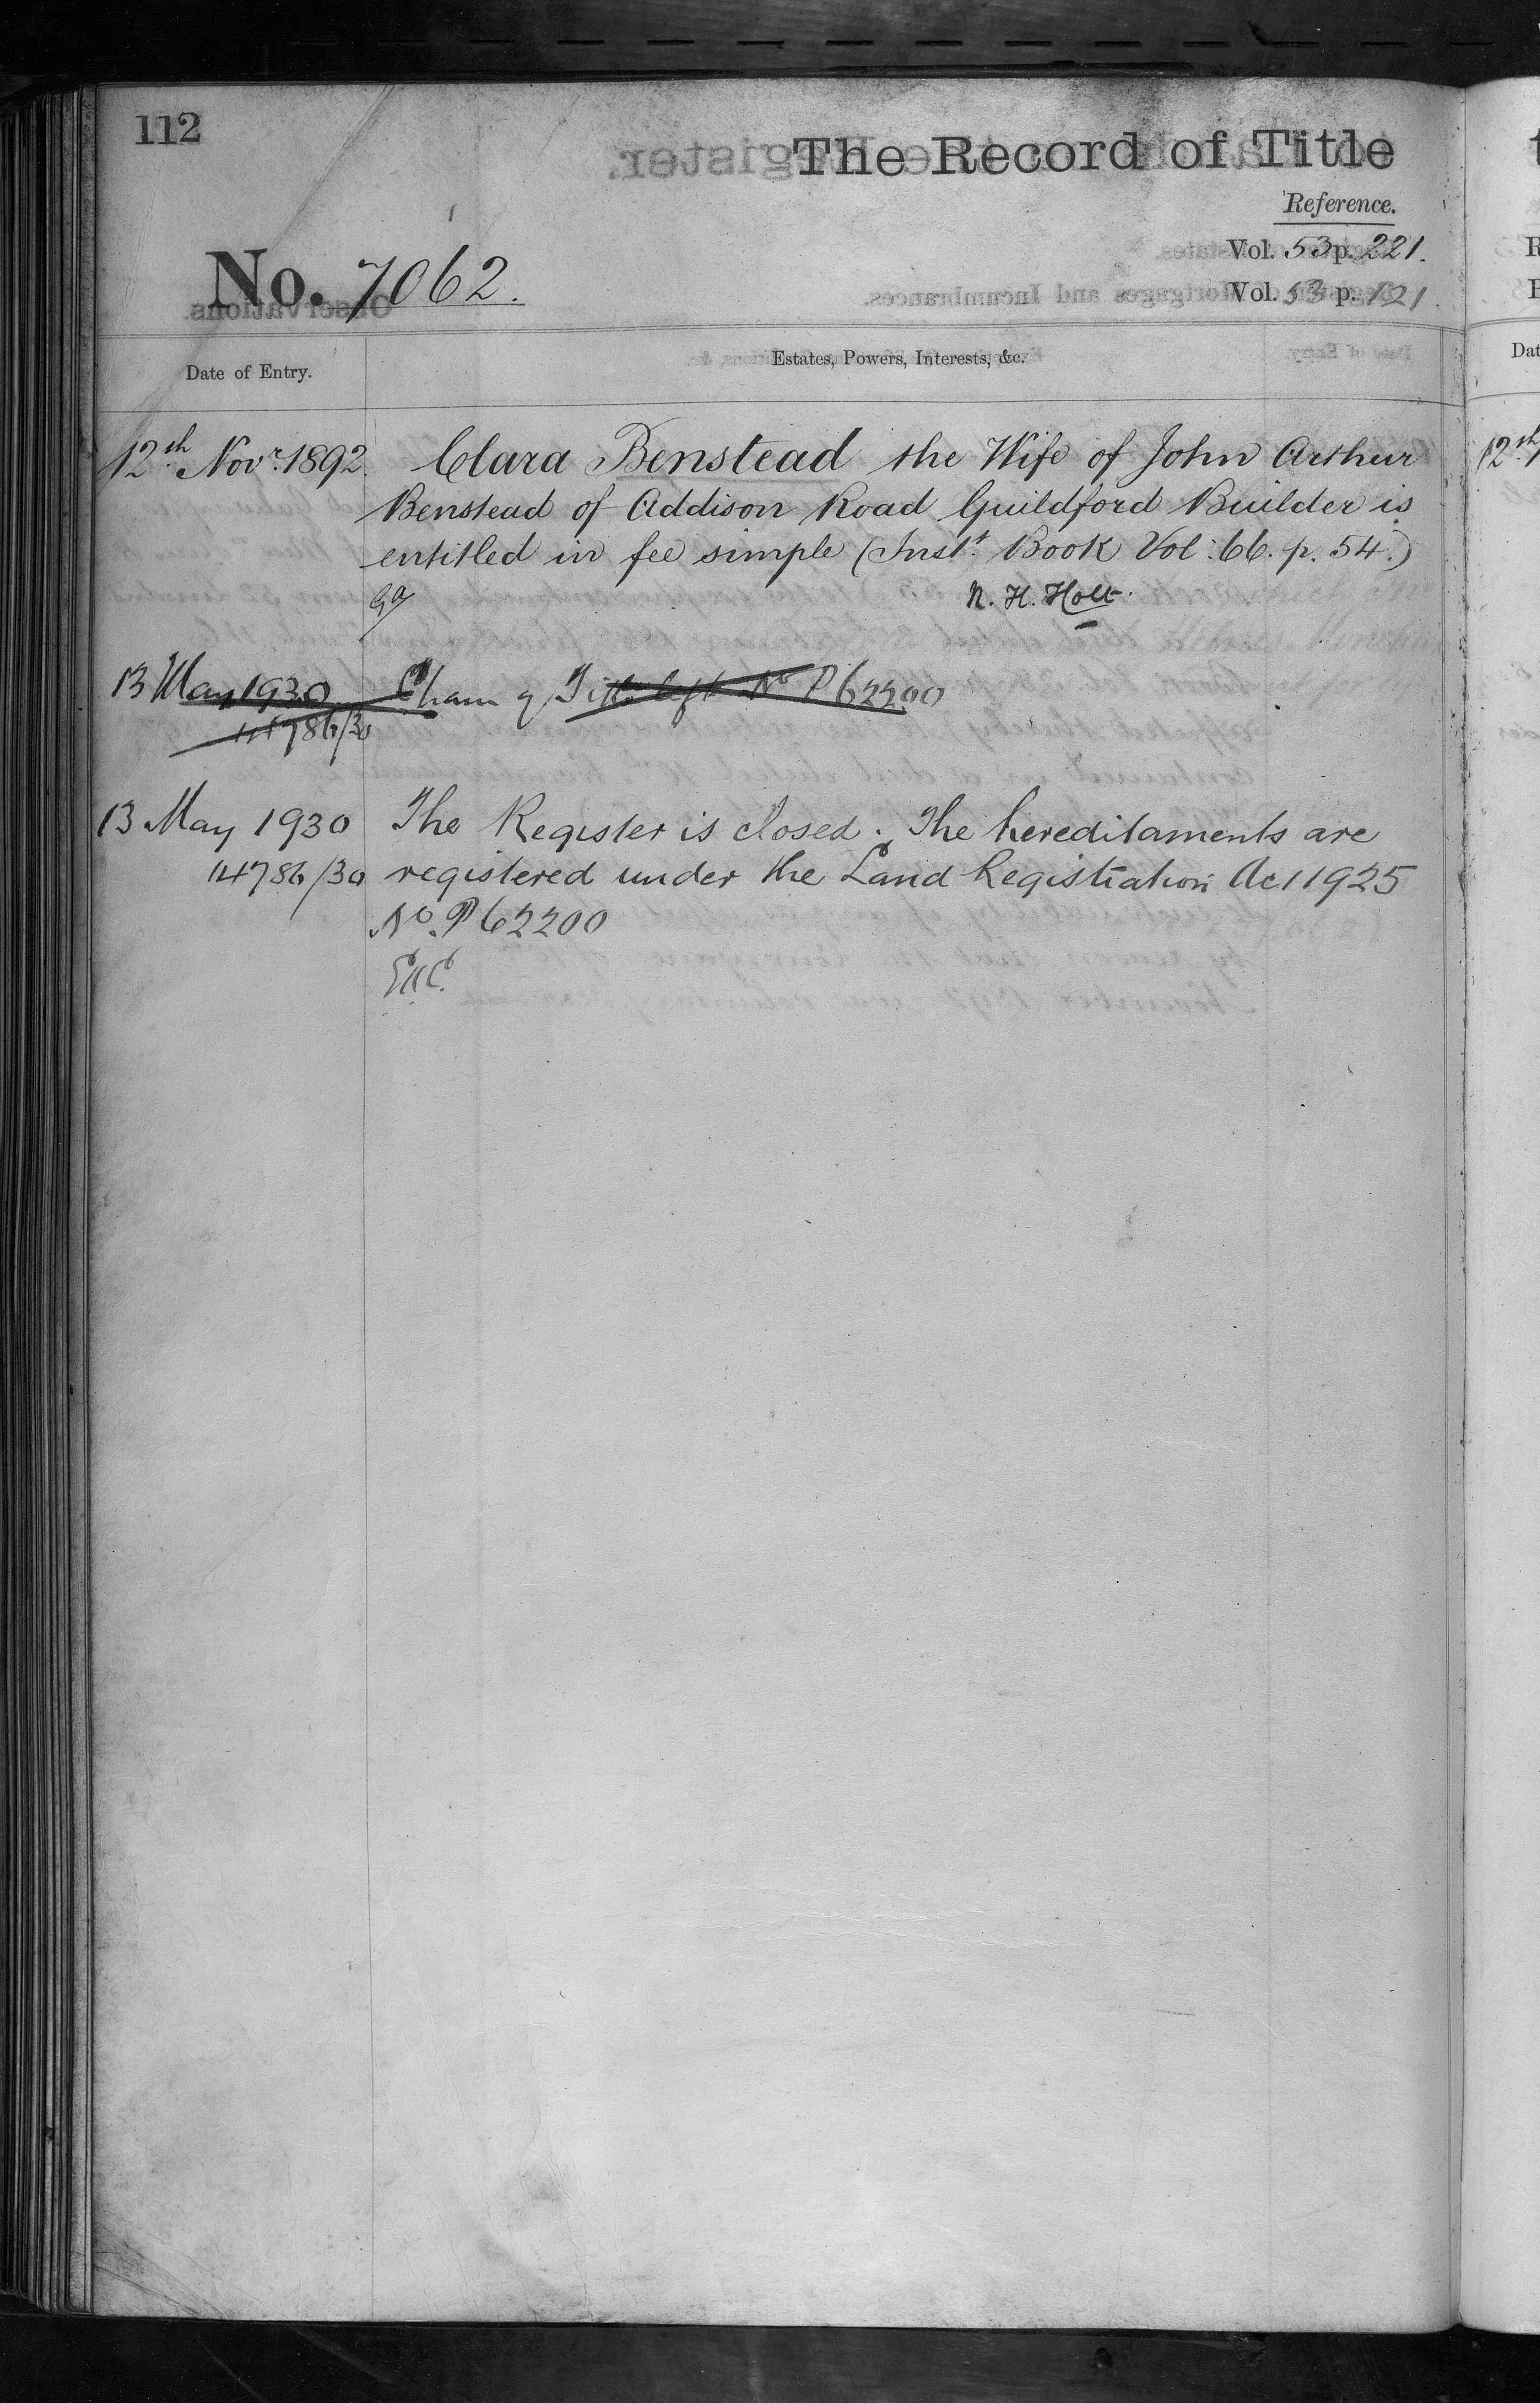 112
The Record of Title
Reference.
Vol. 53 p. 221.
No. 7062.
Vol. 53 p. 121
Date of Entry.
Estates, Powers, Interests, &c.
12th Novr. 1892. Clara Benstead the Wife of John Arthur
Benstead of Addison Road Guildford Builder is
entitled in fee simple (Inst. Book Vol: 66. p. 54.)
N. H. Holt.
13 May 1930 of Title No P62200
14786/30
13 May 1930 The Register is closed. The hereditaments are
14786/30 registered under the Land Registration Act 1925
No. P62200